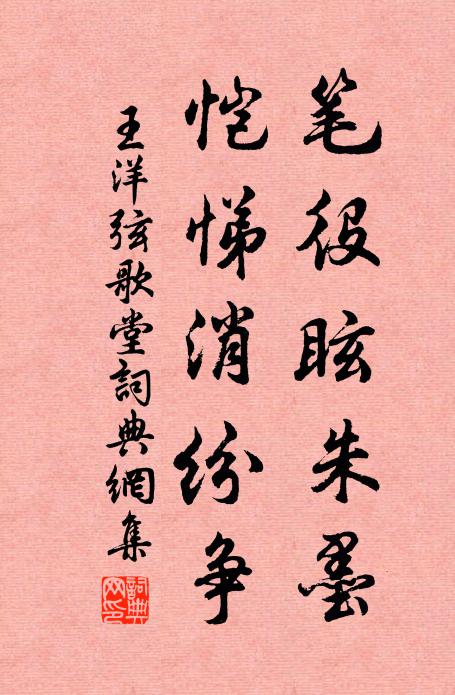 笔役眩朱墨
恺悌消纷争
王洋弦歌堂詞典網集
詞典网印